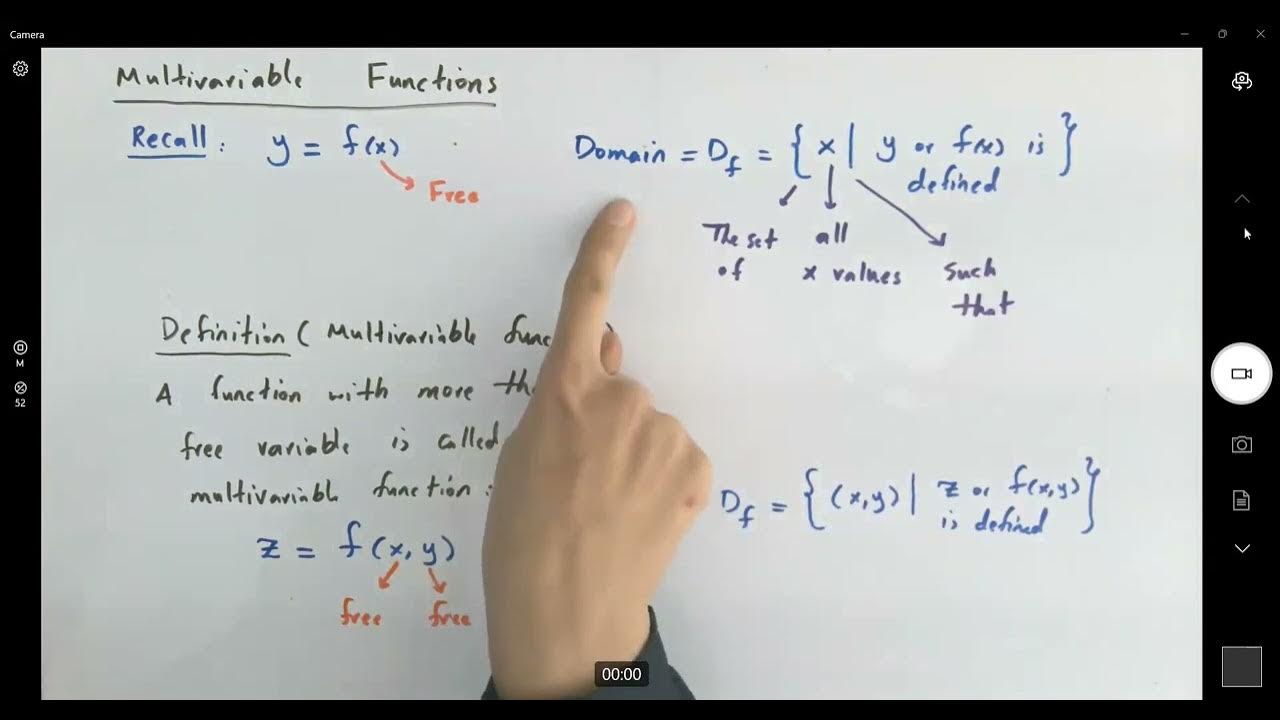 Camera
Multivariable Functions
Recall: y = f(x)
Free
Domain = Df = { x | y or f(x) is defined }
The set of
all x values
such that
Definition ( Multivariable func
A function with more tha
free variable is called
multivariable function :
z = f(x, y)
free free
Df = { (x,y) | z or f(x,y) is defined }
M
52
00:00